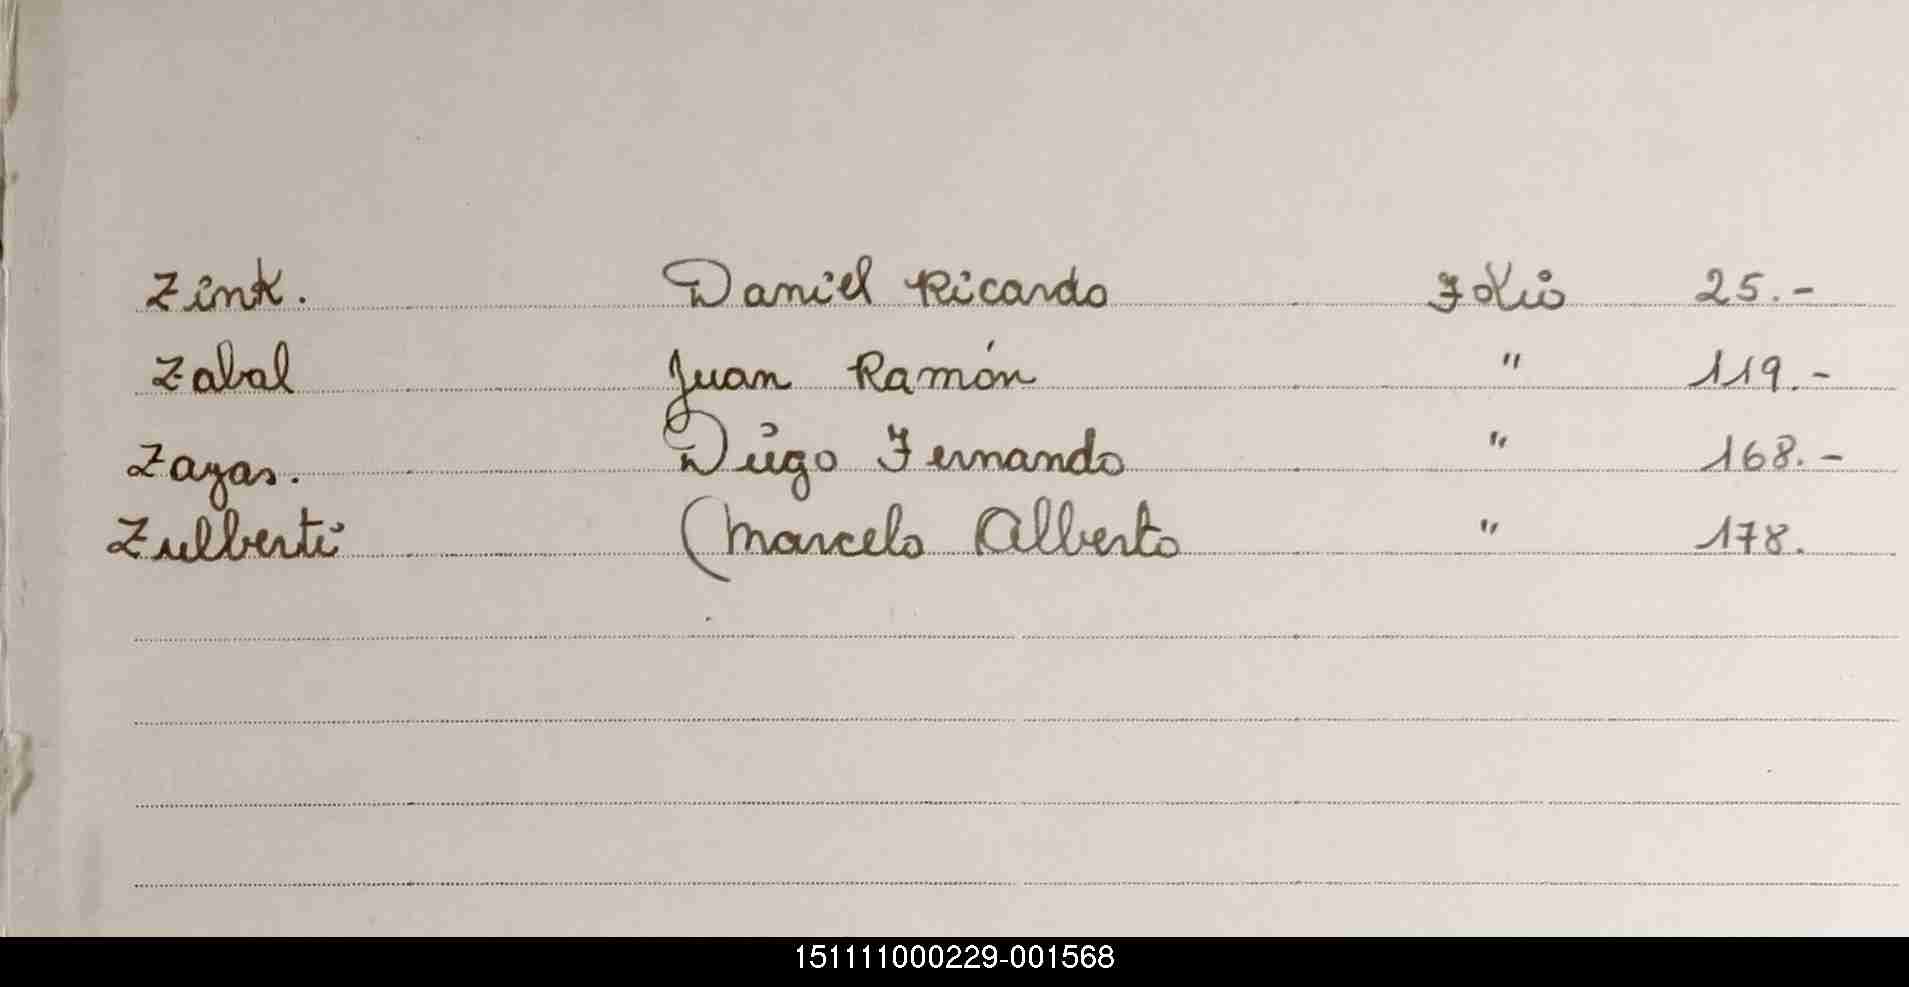 Zink. Daniel Ricardo Folio 25.-
Zabal Juan Ramón " 119.-
Zayas. Diego Fernando " 168.-
Zulberti Marcelo Alberto " 178.
151111000229-001568